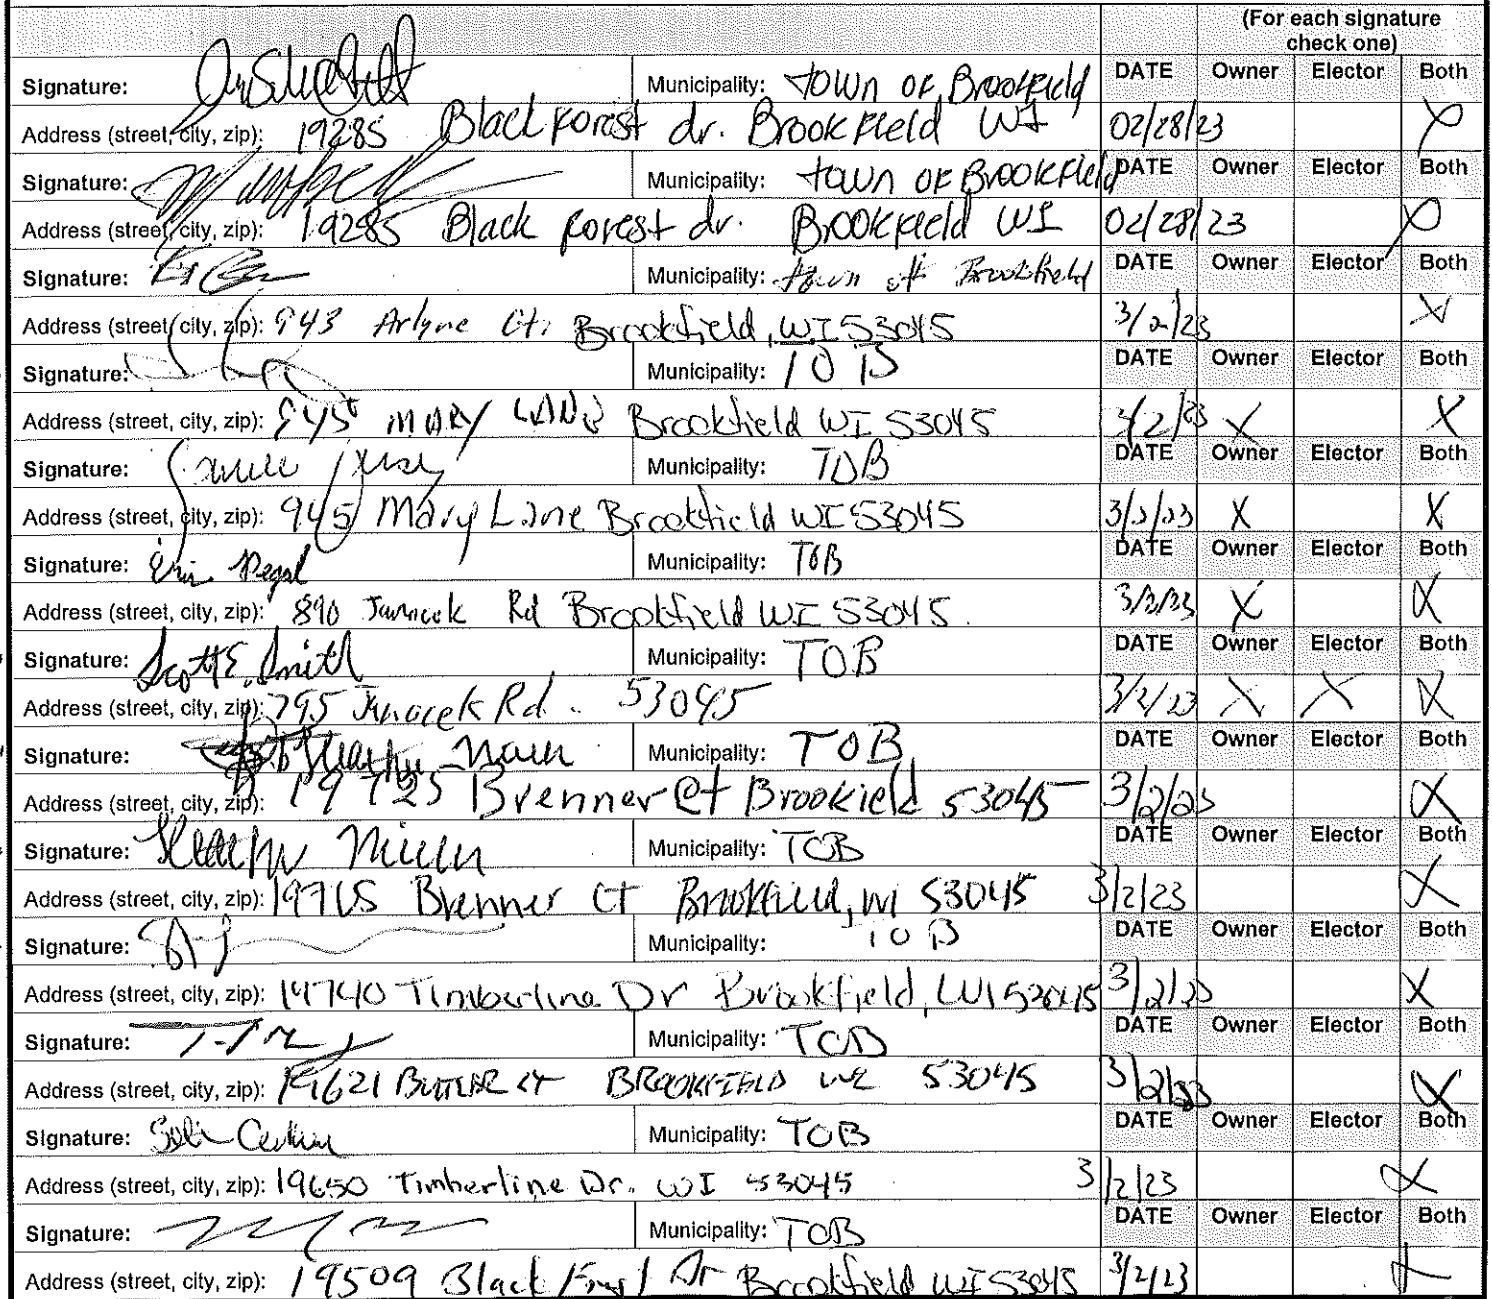 (For each signature
check one)
Signature: Municipality: town of Brookfield DATE Owner Elector Both
Address (street, city, zip): 19285 Black forest dr. Brookfield WI 02/28/23 X
Signature: Municipality: town of Brookfield DATE Owner Elector Both
Address (street, city, zip): 19285 Black forest dr. Brookfield WI 02/28/23 X
Signature: Municipality: town of Brookfield DATE Owner Elector Both
Address (street, city, zip): 943 Arlyne Ct. Brookfield, WI 53045 3/2/23 X
Signature: Municipality: TOB DATE Owner Elector Both
Address (street, city, zip): 945 MARY LANE Brookfield WI 53045 3/2/23 X X
Signature: Municipality: TOB DATE Owner Elector Both
Address (street, city, zip): 945 Mary Lane Brookfield WI 53045 3/2/23 X X
Signature: Erin Municipality: TOB DATE Owner Elector Both
Address (street, city, zip): 890 Janacek Rd Brookfield WI 53045. 3/2/23 X X
Signature: Scott E. Smith Municipality: TOB DATE Owner Elector Both
Address (street, city, zip): 795 Janacek Rd. 53045 3/2/23 X X X
Signature: Municipality: TOB DATE Owner Elector Both
Address (street, city, zip): 19725 Brenner Ct Brookield 53045 3/2/23 X
Signature: Municipality: TOB DATE Owner Elector Both
Address (street, city, zip): 19765 Brenner Ct Brookfield, WI 53045 3/2/23 X
Signature: Municipality: TOB DATE Owner Elector Both
Address (street, city, zip): 19740 Timberline Dr Brookfield, WI 53045 3/2/23 X
Signature: Municipality: TOB DATE Owner Elector Both
Address (street, city, zip): 19621 BUTLER CT BROOKFIELD WI 53045 3/2/23 X
Signature: Municipality: TOB DATE Owner Elector Both
Address (street, city, zip): 19650 Timberline Dr. WI 53045 3/2/23 X
Signature: Municipality: TOB DATE Owner Elector Both
Address (street, city, zip): 19509 Black Forest Dr Brookfield WI 53045 3/2/23 X